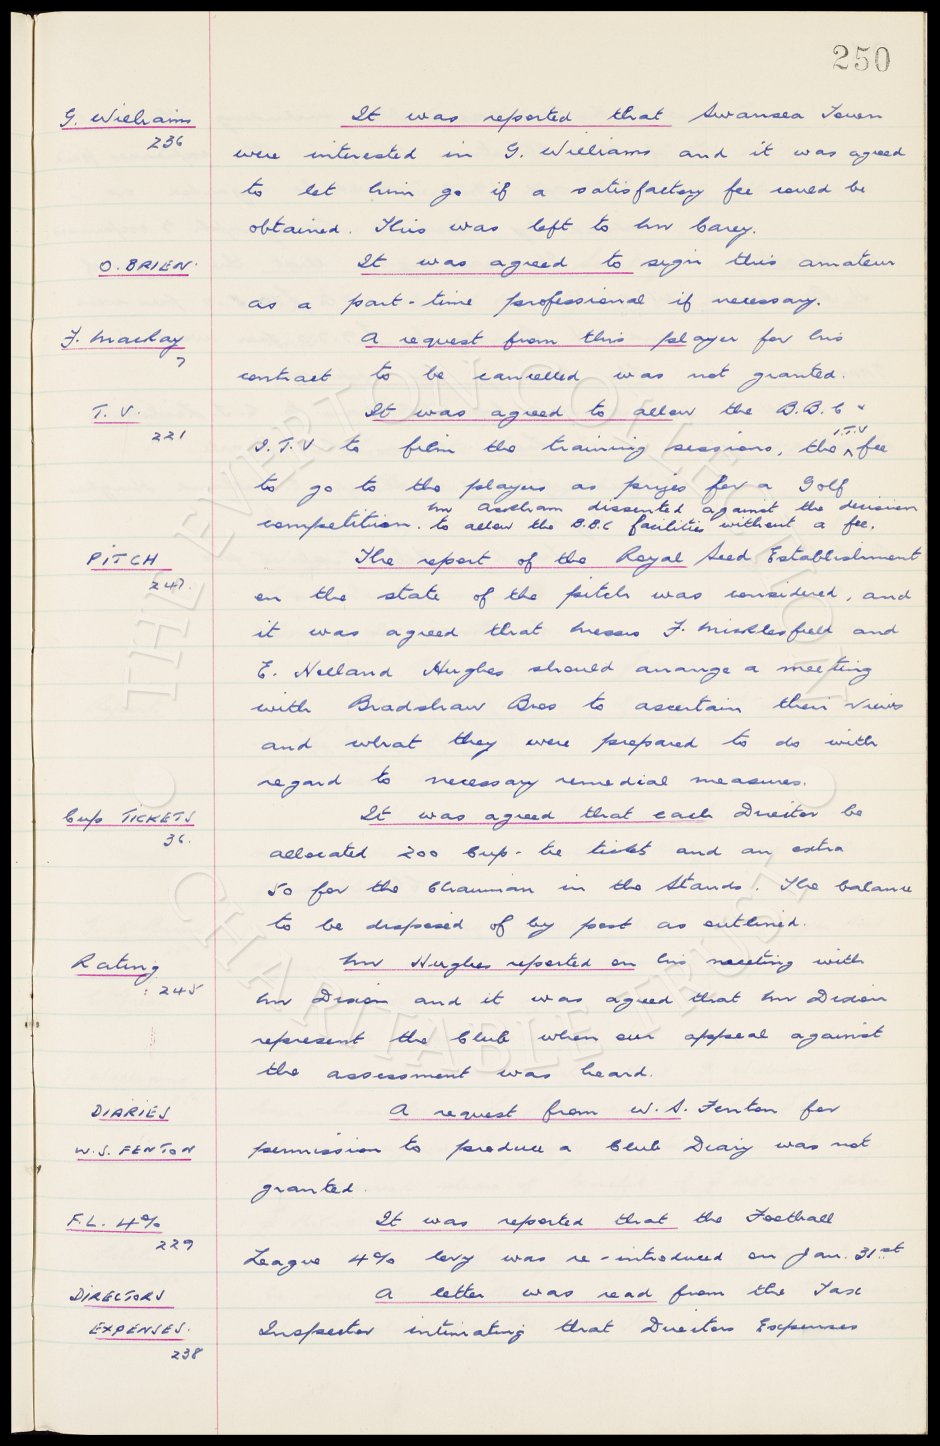 250
G. Williams
236
It was reported that Swansea Town
were interested in G. Williams and it was agreed
to let him go if a satisfactory fee could be
obtained. This was left to Mr Carey.
O. BRIEN.
It was agreed to sign this amateur
as a part-time professional if necessary.
J. Mackay
7
A request from this player for his
contract to be cancelled was not granted.
T. V.
221
It was agreed to allow the B.B.C &
I.T.V to film the training sessions, the I.T.V fee
to go to the players as prizes for a Golf
competition. Mr Askham dissented against the decision
to allow the B.B.C facilities without a fee.
PITCH
247.
The report of the Royal Seed Establishment
on the state of the pitch was considered, and
it was agreed that Messrs F. Micklesfield and
E. Holland Hughes should arrange a meeting
with Bradshaw Bros to ascertain their views
and what they were prepared to do with
regard to necessary remedial measures.
Cup TICKETS
36.
It was agreed that each Director be
allocated 200 Cup-tie tickets and an extra
50 for the Chairman in the Stands. The balance
to be disposed of by post as outlined.
Rating
245
Mr Hughes reported on his meeting with
Mr Dixon and it was agreed that Mr Dixon
represent the Club when our appeal against
the assessment was heard.
DIARIES
W.S. FENTON
A request from W. S. Fenton for
permission to produce a Club Diary was not
granted.
F.L. 4%
229
It was reported that the Football
League 4% levy was re-introduced on Jan. 31st
DIRECTORS
EXPENSES.
238
A letter was read from the Tax
Inspector intimating that Directors Expenses
THE EVERTON COLLECTION
CHARITABLE TRUST